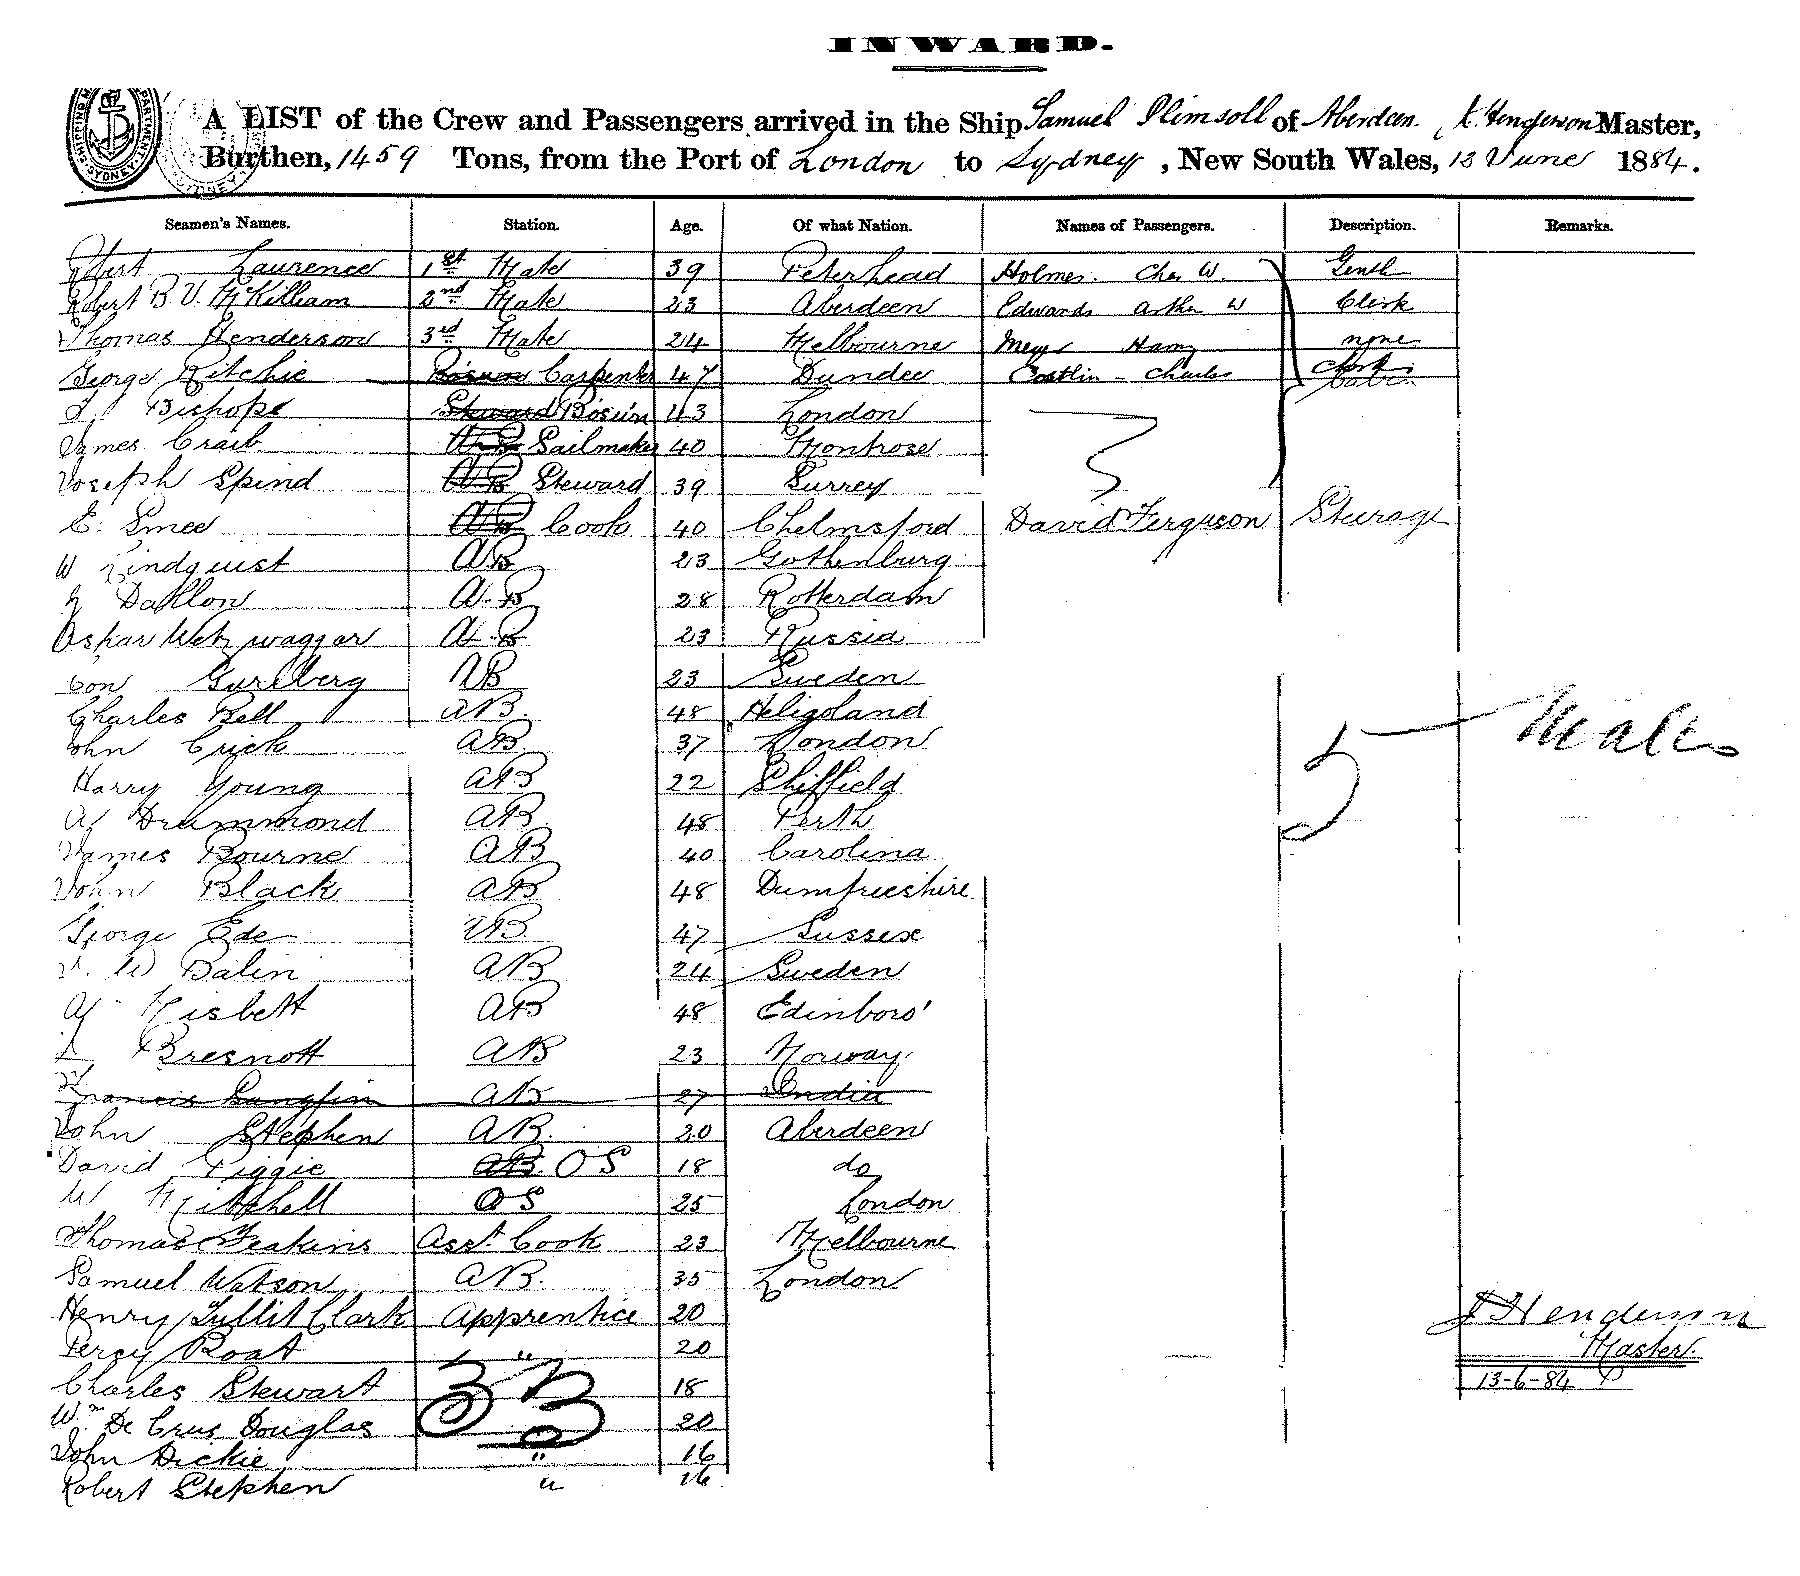 INWARD.
A LIST of the Crew and Passengers arrived in the Ship Samuel Plimsoll of Aberdeen. Henderson Master,
Burthen, 1459 Tons, from the Port of London to Sydney, New South Wales, 13 June 1884.
Seamen's Names. Station. Age. Of what Nation. Names of Passengers. Description. Remarks.
Robert Laurence 1st Mate 39 Peterhead Holmes. Chas W. Gentl
Robert B. V. McKilliam 2nd Mate 23 Aberdeen Edwards Arthur W Clerk
Thomas Henderson 3rd Mate 24 Melbourne Harry none
George Ritchie Carpenter 47 Dundee Costlin - Charles Clerk
Bishops Steward Bosun 43 London
James Craib AB Sailmaker 40 Montrose
Joseph Spind AB Steward 39 Surrey
E. Smee AB Cook 40 Chelmsford David Ferguson Sturage
W Lindquist AB 23 Gothenburg
Dahllon A.B 28 Rotterdam
Oskar A.B 23 Russia
Con AB 23 Sweden
Charles Bell AB 48 Heligoland
John Crick AB 37 London
5 Males
Harry Young AB 22 Shiffield
A Drummond AB 48 Perth
James Bourne AB 40 Carolina
John Black AB 48 Dumfrieshire
George Ede AB 47 Sussex
W Dalin AB 24 Sweden
A Nisbett AB 48 Edinboro'
Bresnott AB 23 Norway.
Francis AB 27 India
John Stephen AB. 20 Aberdeen
David Piggie AB OS 18 do
W Mitchell OS 25 London
Thomas Feakins Asst. Cook 23 Melbourne
Samuel Watson AB. 35 London
Henry Tullit Clark Apprentice 20
Henderson
Percy Roat " 20
Master.
Charles Stewart 18
13-6-84
33
Wm De Crus Douglas 20
John Dickie " 16
Robert Stephen " 16